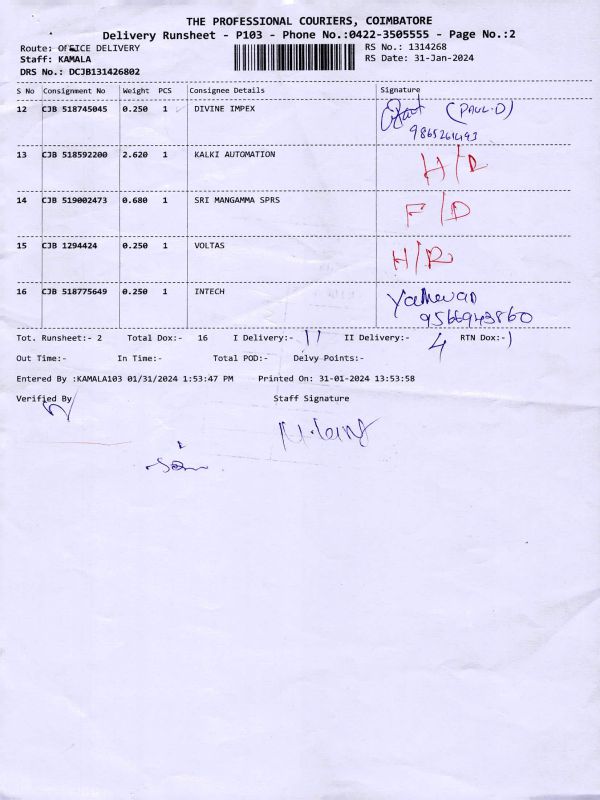 THE PROFESSIONAL COURIERS, COIMBATORE
Delivery Runsheet - P103 - Phone No.:0422-3505555 - Page No.:2
Route: OFFICE DELIVERY RS No.: 1314268
Staff: KAMALA RS Date: 31-Jan-2024
DRS No.: DCJB131426802
S No Consignment No Weight PCS Consignee Details Signature
12 CJB 518745045 0.250 1 DIVINE IMPEX (PAUL.D)
9865261493
13 CJB 518592200 2.620 1 KALKI AUTOMATION H/R
14 CJB 519002473 0.680 1 SRI MANGAMMA SPRS F/D
15 CJB 1294424 0.250 1 VOLTAS H/R
16 CJB 518775649 0.250 1 INTECH
9566943860
Tot. Runsheet:- 2 Total Dox:- 16 I Delivery:- 11 II Delivery:- 4 RTN Dox:- 1
Out Time:- In Time:- Total POD:- Delvy Points:-
Entered By :KAMALA103 01/31/2024 1:53:47 PM Printed On: 31-01-2024 13:53:58
Verified By Staff Signature